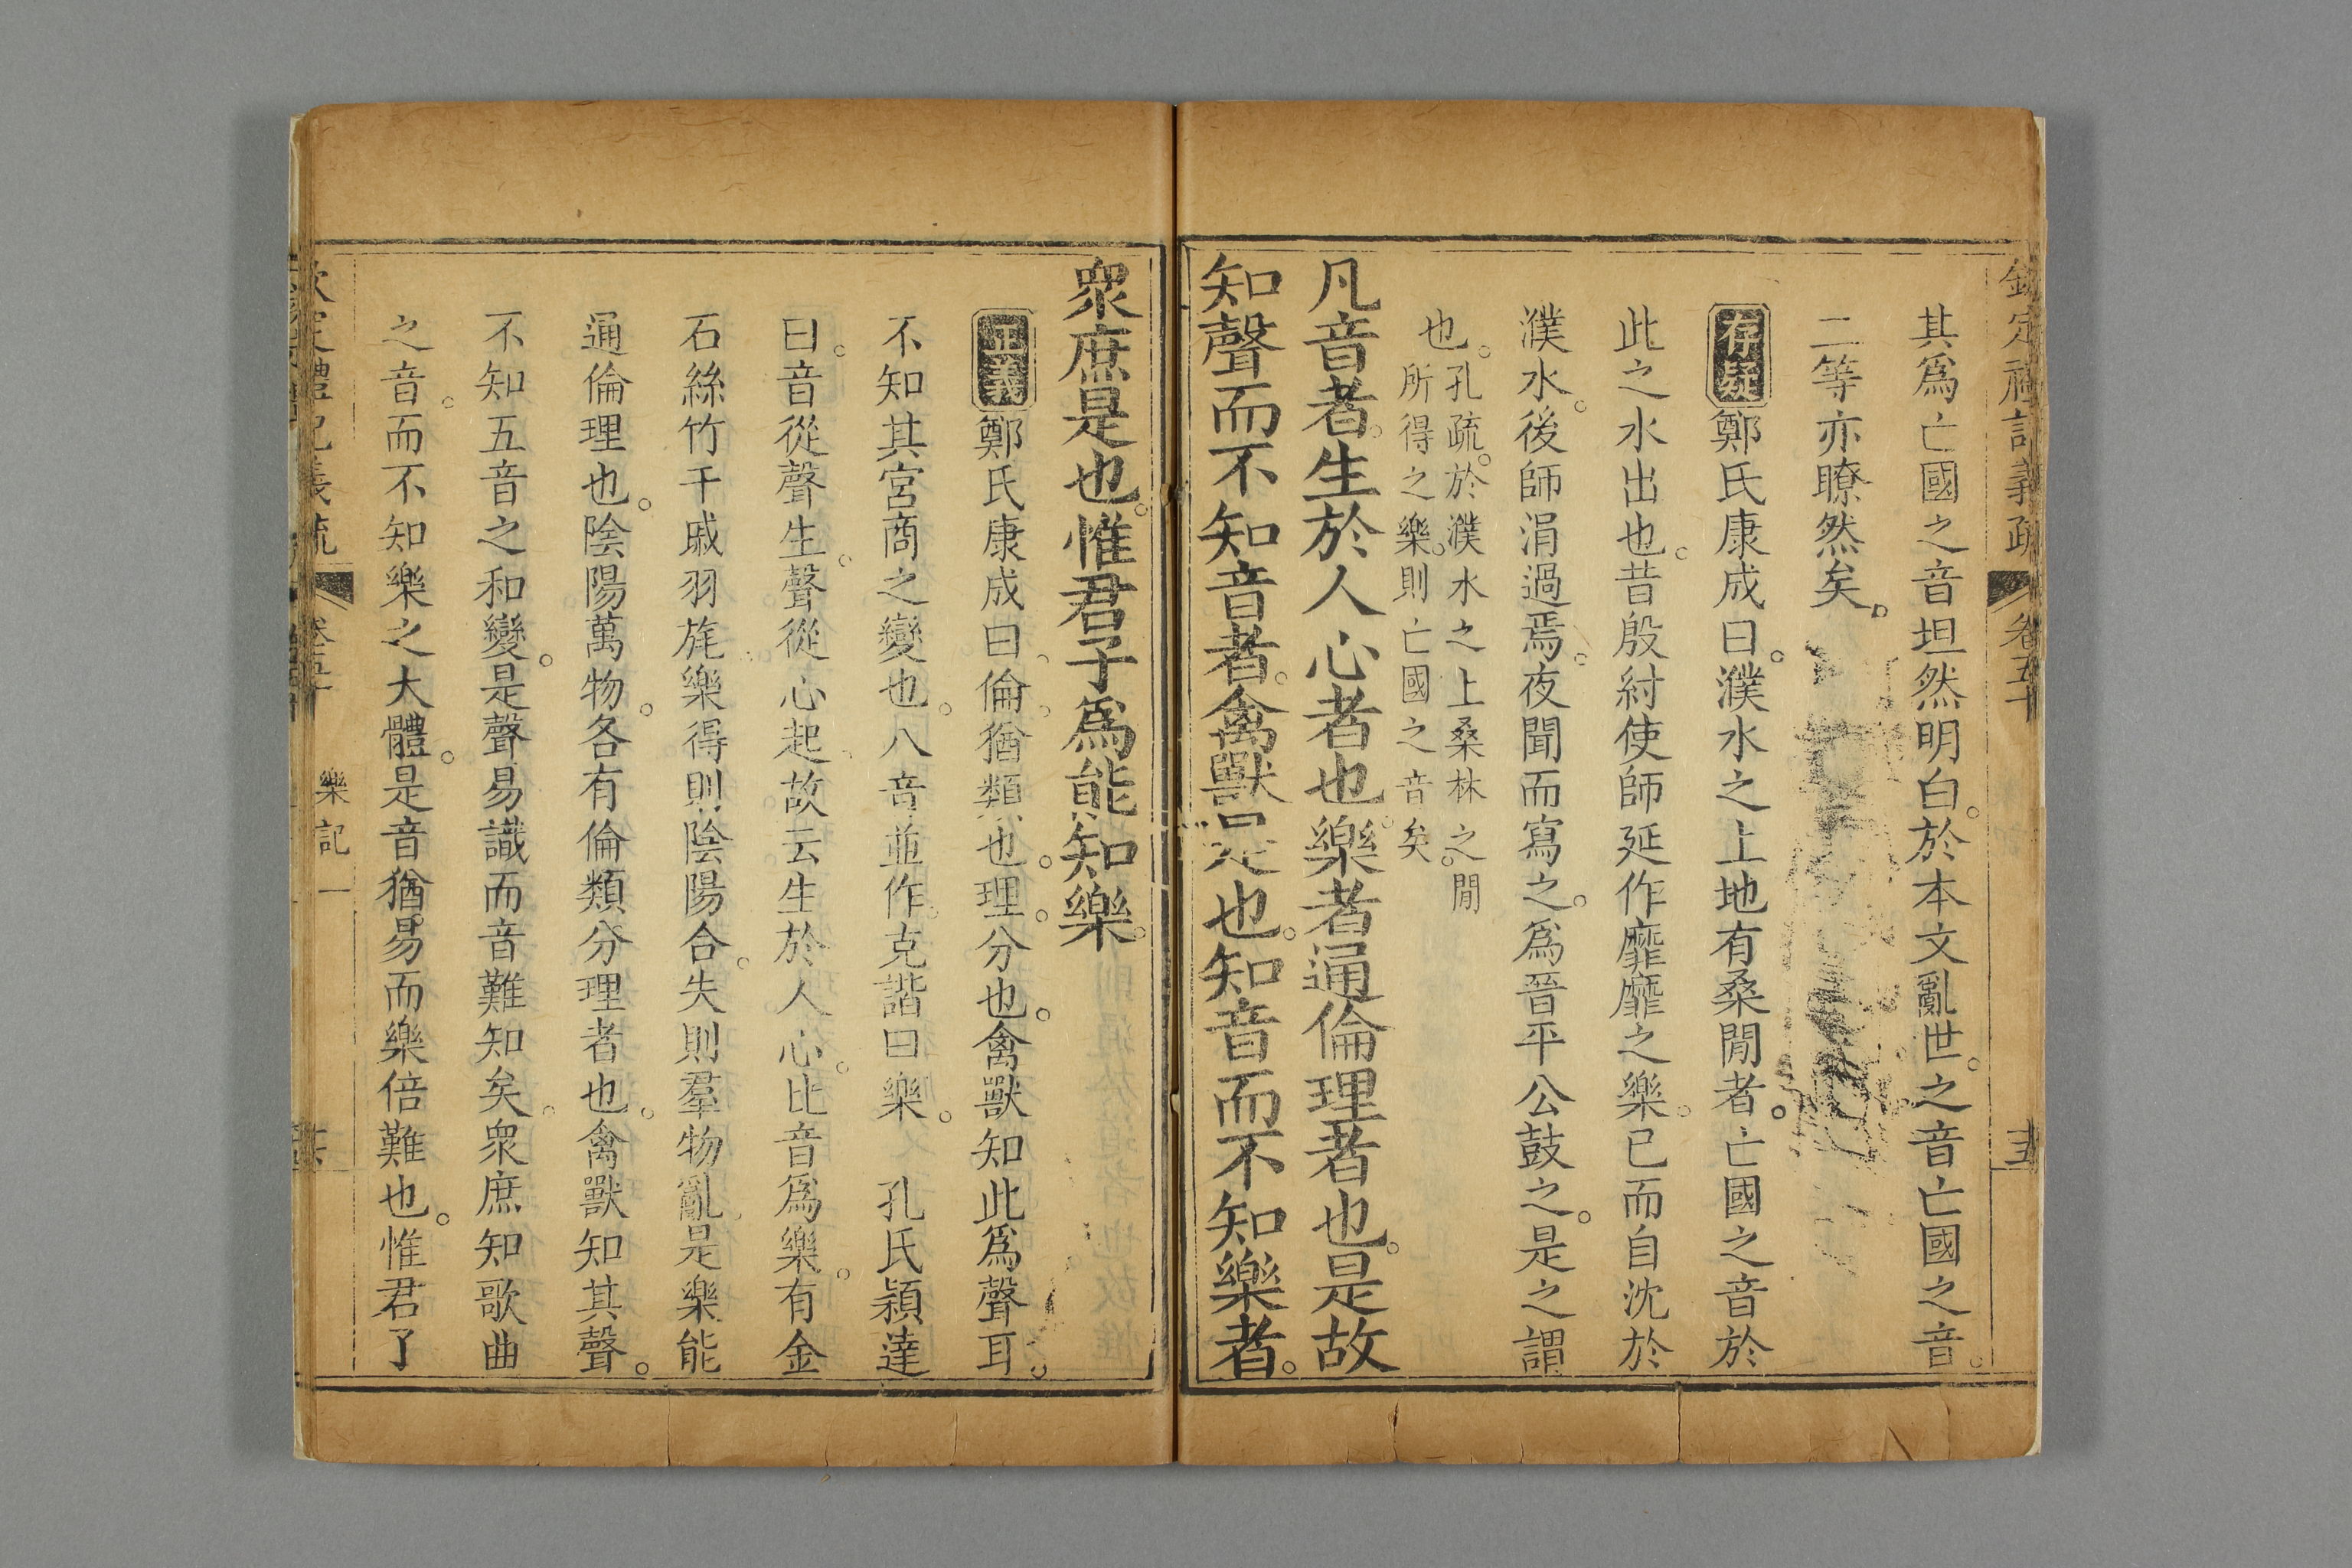 其爲亡國之音坦然明白。於本文亂世。之音亡國之音。
二等亦瞭然矣。
存疑鄭氏康成曰。濮水之上地有桑閒者。亡國之音於
此之水出也。昔殷紂使師延作靡靡之樂。已而自沈於
濮水。後師涓過焉。夜聞而寫之。爲晉平公鼓之。是之謂
也。孔疏。於濮水之上桑林之閒
所得之樂。則亡國之音矣。
凡音者。生於人心者也。樂者通倫理者也。是故
知聲而不知音者。禽獸是也。知音而不知樂者。
衆庶是也。惟君子爲能知樂。
正義鄭氏康成曰。倫。猶類也。理。分也。禽獸知此爲聲耳。
不知其宮商之變也。八音並作。克諧曰樂。 孔氏穎達
曰。音從聲生。聲從心起。故云生於人心。比音爲樂。有金
石絲竹干戚羽旄。樂得則陰陽合。失則羣物亂。是樂能
通倫理也。陰陽萬物。各有倫類分理者也。禽獸知其聲。
不知五音之和變。是聲易識而音難知矣。衆庶知歌曲
之音。而不知樂之大體。是音猶易而樂倍難也。惟君了
樂記一